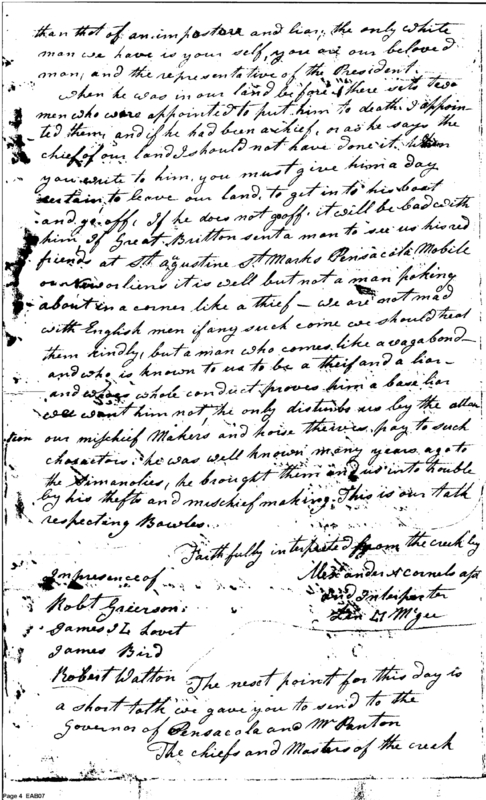 than that of an imposture and liar, the only white
man we have is your self, you are our beloved
man, and the representetive of the President.
When he was in our land before there sits two
men who were appointed to put him to death. I appoin-
ted them, and if he had been a chief, or as he says the
chief of our land I should not have done it. When
you write to him, you must give him a day
certain to leave our land, to get in to his boat
and go off, If he does not go off, it will be bad with
him If Great Britton sent a man to see us his red
friends at St agustine St Marks Pensacola Mobile
or New orliens it is well but not a man poking
about in a corner like a thief — we are not mad
with English men if any such come we should treat
them kindly, but a man who comes like a vagabond —
and who is known to us to be a theif and a liar —
and whose whole conduct proves him a base liar
we want him not, he only disturbs us by the atten
tion our mischief Makers and horse theives pay to such
characters. he was well known many years ago to
the Simanolies, he brought them and us into trouble
by his thefts and mischief making. This is our talk
respecting Bowles
Faithfully interpreted from the creek by
In presence of
Alexander Cornels
Robt Grierson
and Interpreter
James Lovet
Lin McGee
James Bird
Robert Walton
The next point for this day is
a short talk we gave you to send to the
Governor of Pensacola and Mr Panton
The chiefs and Masters of the creek
Page 4 EAB07